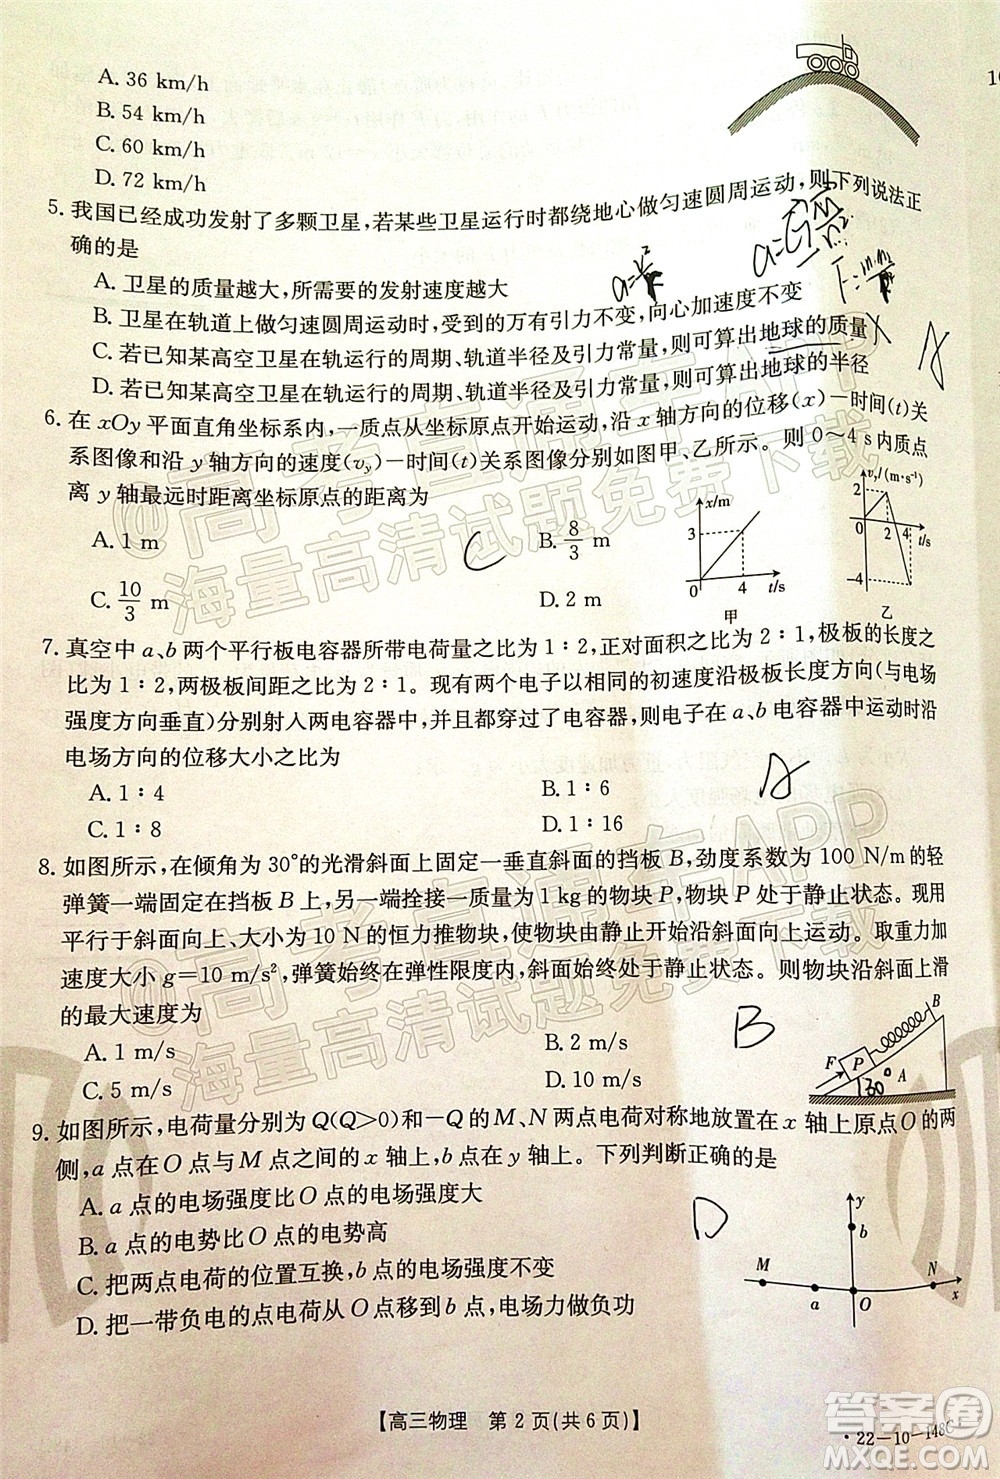 A. 36 km/h
B. 54 km/h
C. 60 km/h
D. 72 km/h
5. 我国已经成功发射了多颗卫星,若某些卫星运行时都绕地心做匀速圆周运动,则下列说法正
确的是
A. 卫星的质量越大,所需要的发射速度越大
B. 卫星在轨道上做匀速圆周运动时,受到的万有引力不变,向心加速度不变
C. 若已知某高空卫星在轨运行的周期、轨道半径及引力常量,则可算出地球的质量
D. 若已知某高空卫星在轨运行的周期、轨道半径及引力常量,则可算出地球的半径
A
6. 在 xOy 平面直角坐标系内,一质点从坐标原点开始运动,沿 x 轴方向的位移(x)—时间(t)关
系图像和沿 y 轴方向的速度(vy)—时间(t)关系图像分别如图甲、乙所示。则 0～4 s 内质点
离 y 轴最远时距离坐标原点的距离为
A. 1 m
B. 8/3 m
C. 10/3 m
D. 2 m
C
x/m
3
0
4
t/s
甲
vy/(m·s⁻¹)
2
0
2
4
t/s
−4
乙
7. 真空中 a、b 两个平行板电容器所带电荷量之比为 1∶2,正对面积之比为 2∶1,极板的长度之
比为 1∶2,两极板间距之比为 2∶1。现有两个电子以相同的初速度沿极板长度方向(与电场
强度方向垂直)分别射入两电容器中,并都穿过了电容器,则电子在 a、b 电容器中运动时沿
电场方向的位移大小之比为
A. 1∶4
B. 1∶6
C. 1∶8
D. 1∶16
A
8. 如图所示,在倾角为 30°的光滑斜面上固定一垂直斜面的挡板 B,劲度系数为 100 N/m 的轻
弹簧一端固定在挡板 B 上,另一端拴接一质量为 1 kg 的物块 P,物块 P 处于静止状态。现用
平行于斜面向上、大小为 10 N 的恒力推物块,使物块由静止开始沿斜面向上运动。取重力加
速度大小 g=10 m/s²,弹簧始终在弹性限度内,斜面始终处于静止状态。则物块沿斜面上滑
的最大速度为
A. 1 m/s
B. 2 m/s
C. 5 m/s
D. 10 m/s
B
B
F
P
A
30°
9. 如图所示,电荷量分别为 Q(Q>0)和−Q 的 M、N 两点电荷对称地放置在 x 轴上原点 O 的两
侧,a 点在 O 点与 M 点之间的 x 轴上,b 点在 y 轴上。下列判断正确的是
A. a 点的电场强度比 O 点的电场强度大
B. b 点的电势比 O 点的电势高
C. 把两点电荷的位置互换,b 点的电场强度不变
D. 把一带负电的点电荷从 O 点移到 b 点,电场力做负功
D
y
b
M
N
a
O
x
【高三物理 第 2 页(共 6 页)】
·22−10−148C·
@高考直通车APP
海量高清试题免费下载
@高考直通车APP
海量高清试题免费下载
答案圈
MXQE.COM